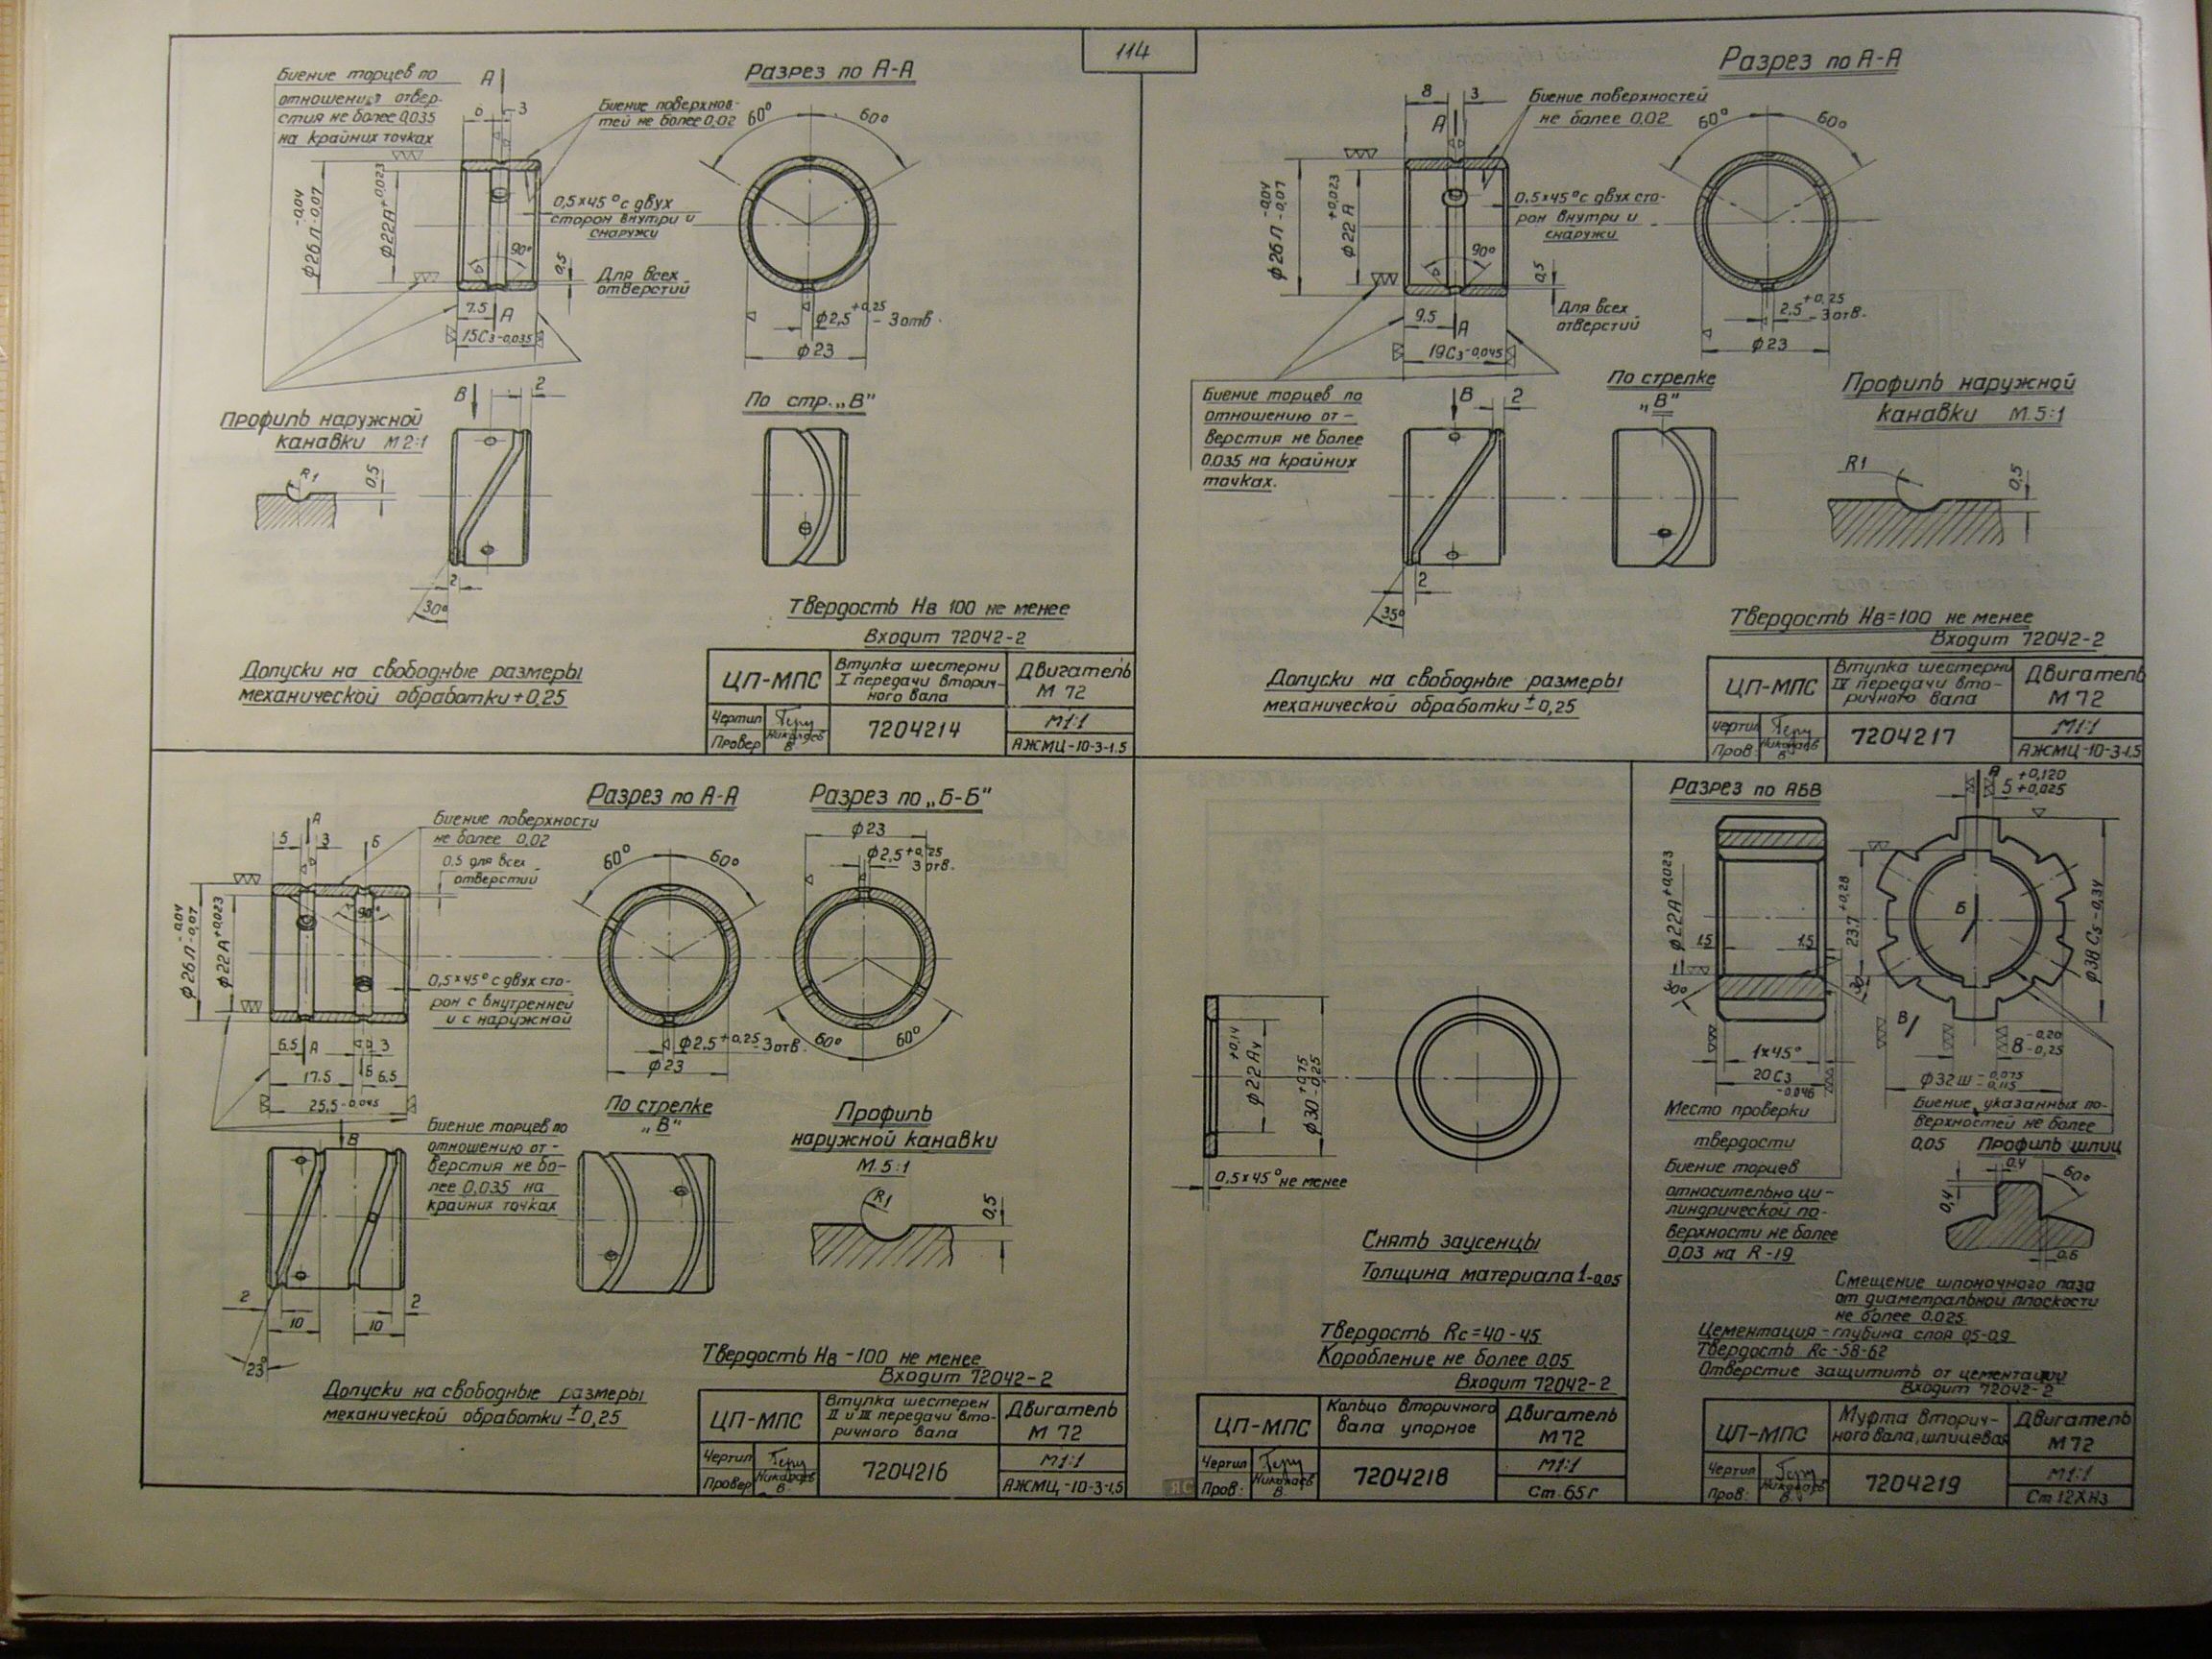 114
Биение торцев по
отношению отвер-
стия не более 0,035
на крайних точках
А
6
3
Биение поверхнос-
тей не более 0,02
Разрез по А-А
60°
60°
ф26Л -0,04 -0,07
ф22А+0,023
0,5×45° с двух
сторон внутри и
снаружи
90°
0,5
Для всех
отверстий
7.5
А
15С3-0,035
ф2,5+0,25 - 3 отв.
ф23
В
2
По стр. „В"
Профиль наружной
канавки М 2:1
R1
0,5
2
30°
Твердость Нв 100 не менее
Входит 72042-2
Допуски на свободные размеры
механической обработки+0,25
ЦП-МПС
Втулка шестерни
I передачи вторич-
ного вала
Двигатель
М 72
Чертил
Геру
Провер
Николаев
В.
7204214
М1:1
АЖМЦ-10-3-1.5
Разрез по А-А
8
3
А
Биение поверхностей
не более 0.02
60°
60°
ф26Л -0,04 -0,07
ф22А +0,023
0,5×45° с двух сто-
рон внутри и
снаружи
90°
0,5
Для всех
отверстий
9.5
А
19С3-0,045
2,5+0,25 - 3 отв.
ф23
Биение торцев по
отношению от-
верстия не более
0.035 на крайних
точках.
В
2
По стрелке
„В"
Профиль наружной
канавки М.5:1
R1
0,5
2
35°
Твердость Нв=100 не менее
Входит 72042-2
Допуски на свободные размеры
механической обработки ± 0,25
ЦП-МПС
Втулка шестерни
IV передачи вто-
ричного вала
Двигатель
М 72
Чертил
Геру
Пров.
Николаев
В.
7204217
М1:1
АЖМЦ-10-3-1.5
Разрез по А-А
Разрез по „Б-Б"
5
А
3
Б
Биение поверхности
не более 0,02
0.5 для всех
отверстий
60°
60°
ф23
ф2,5+0,25
3 отв.
ф26Л -0,04 -0,07
ф22А+0,023
90°
0,5×45° с двух сто-
рон с внутренней
и с наружной
6.5
А
3
17.5
Б
6.5
25.5-0,045
ф2,5+0,25-3отв.
ф23
60°
60°
Биение торцев по
отношению от-
верстия не бо-
лее 0,035 на
крайних точках
В
По стрелке
„В"
Профиль
наружной канавки
М.5:1
R1
0,5
2
10
10
2
23°
Твердость Нв-100 не менее
Входит 72042-2
Допуски на свободные размеры
механической обработки ± 0,25
ЦП-МПС
Втулка шестерен
II и III передачи вто-
ричного вала
Двигатель
М 72
Чертил
Геру
Провер
Николаев
В.
7204216
М1:1
АЖМЦ-10-3-1,5
ф22А4 +0,14
ф30 +0,75 -0,25
0,5×45° не менее
Снять заусенцы
Толщина материала 1-0,05
Твердость Rc=40-45
Коробление не более 0.05
Входит 72042-2
ЦП-МПС
Кольцо вторичного
вала упорное
Двигатель
М72
Чертил
Геру
Пров:
Николаев
В.
7204218
М1:1
Ст. 65г
ЯС
Разрез по АБВ
А
5 +0,120 +0,025
ф22А+0,023
1.5
1.5
23.7+0,28
Б
ф38 С5 -0,34
30°
30°
В
1×45°
20С3 -0,046
8 -0,20 -0,25
ф32Ш -0,075 -0,115
Место проверки
твердости
Биение указанных по-
верхностей не более
0.05
Профиль шлиц
Биение торцев
относительно ци-
линдрической по-
верхности не более
0,03 на R-19
0.4
60°
0,4
0.6
Смещение шпоночного паза
от диаметральной плоскости
не более 0.025
Цементация - глубина слоя 0,5-0,9
Твердость Rc-58-62
Отверстие защитить от цементации
Входит 72042-2
ЦП-МПС
Муфта вторич-
ного вала, шлицевая
Двигатель
М 72
Чертил
Геру
Пров:
Николаев
В.
7204219
М1:1
Ст 12ХН3